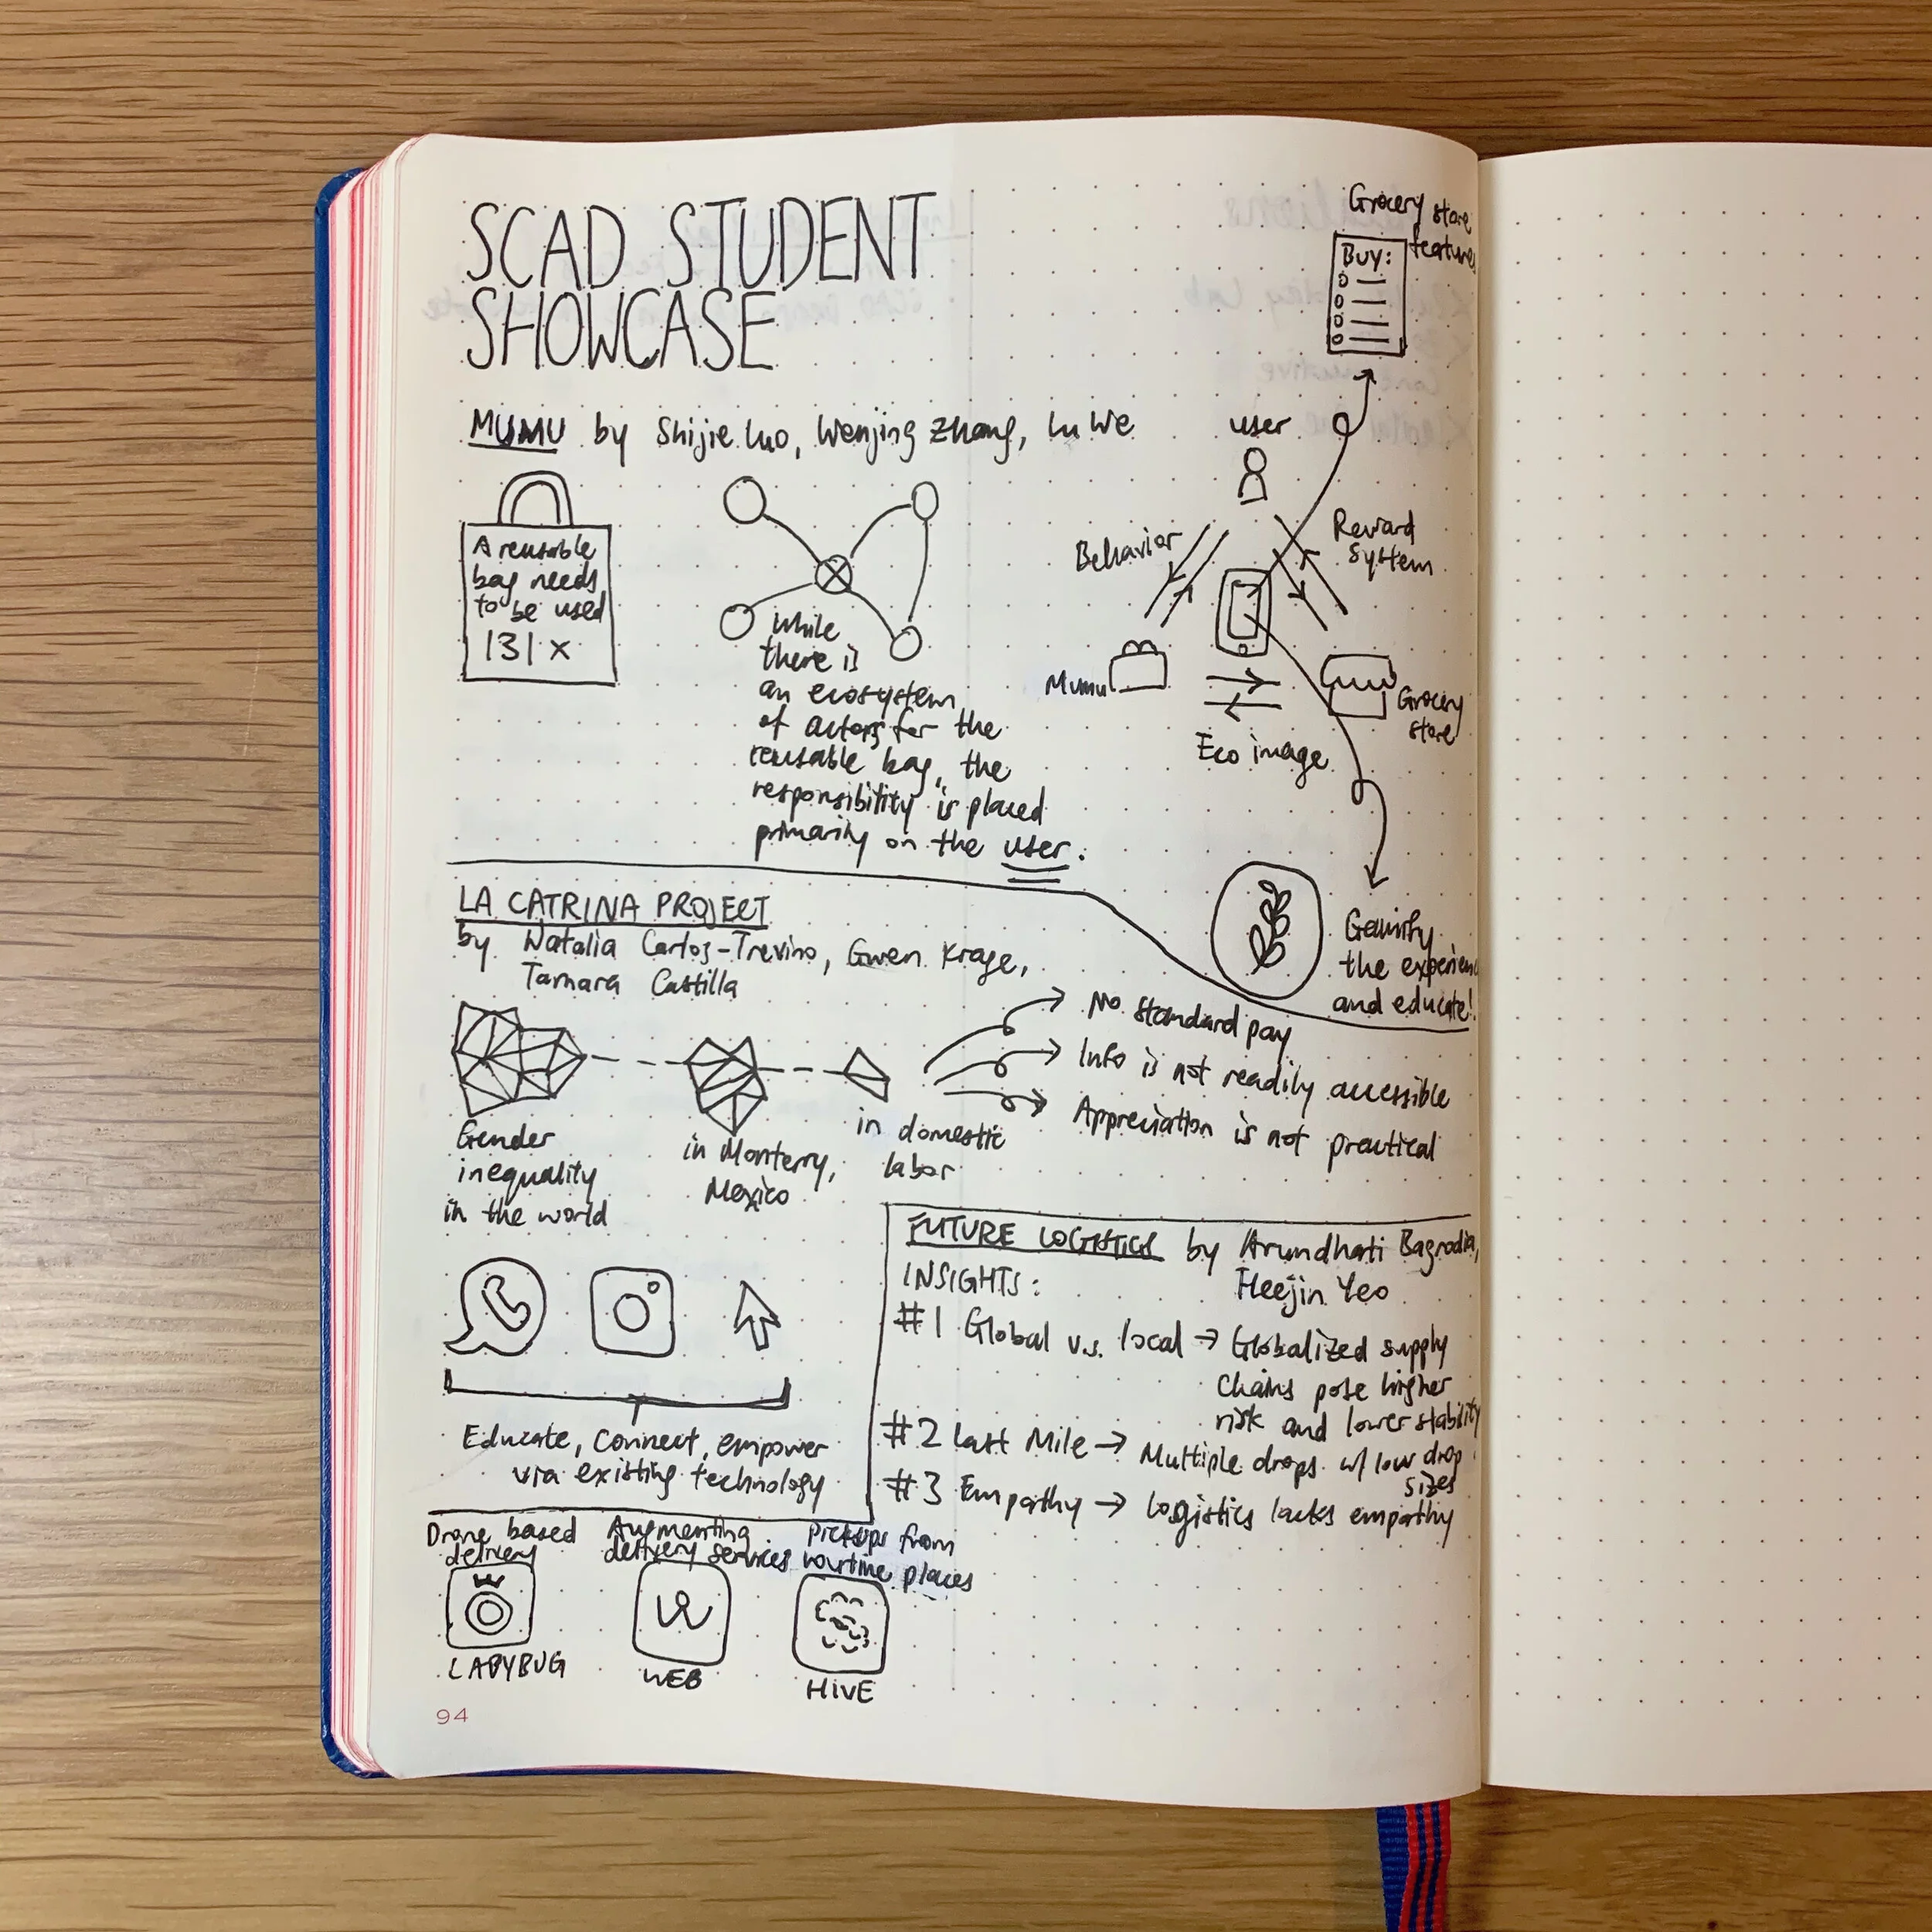 SCAD STUDENT
SHOWCASE
MUMU by Shijie Luo, Wenjing Zhang, Lu We
A reusable
bag needs
to be used
131 x
While
there is
an ecosystem
of actors for the
reusable bag, the
responsibility is placed
primarily on the user.
Grocery store
feature
BUY:
user
Behavior
Reward
System
Mumu
Grocery
store
Eco image
Gamify
the experience
and educate!
LA CATRINA PROJECT
by Natalia Carlos-Trevino, Gwen Krage,
Tamara Castilla
Gender
inequality
in the world
in Monterry,
Mexico
in domestic
labor
No standard pay
Info is not readily accessible
Appreciation is not practical
Educate, connect, empower
via existing technology
FUTURE LOGISTICS by Arundhati Bagrodia,
Heejin Yeo
INSIGHTS:
#1 Global v.s. local → Globalized supply
chains pose higher
risk and lower stability
#2 Last Mile → Multiple drops w/ low drop
sizes
#3 Empathy → Logistics lacks empathy
Drone based
delivery
LADYBUG
Augmenting
delivery services
WEB
Pickups from
routine places
HIVE
94